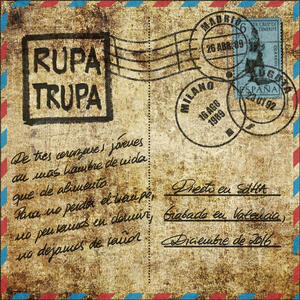 RUPA
TRUPA
MADRID
26 ABR. 89
MILANO
16 AGO
1989
ESPAÑA
De tres corazones jóvenes
con más hambre de vida
que de alimento
Para no perder el tiempo,
no pensamos en dormir,
no dejamos de
Directo en
Grabado en Valencia,
Diciembre de 2016